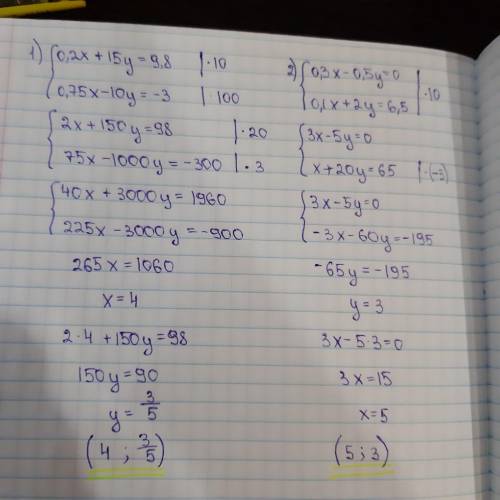 1) { 0,2x + 15y = 9,8 | ·10
0,75x - 10y = -3 | 100
{ 2x + 150y = 98 | ·20
75x - 1000y = -300 | ·3
{ 40x + 3000y = 1960
225x - 3000y = -900
265x = 1060
x = 4
2·4 + 150y = 98
150y = 90
y = 3/5
(4 ; 3/5)
2) { 0,3x - 0,5y = 0
0,1x + 2y = 6,5 | ·10
{ 3x - 5y = 0
x + 20y = 65 | ·(-3)
{ 3x - 5y = 0
-3x - 60y = -195
-65y = -195
y = 3
3x - 5·3 = 0
3x = 15
x = 5
(5 ; 3)